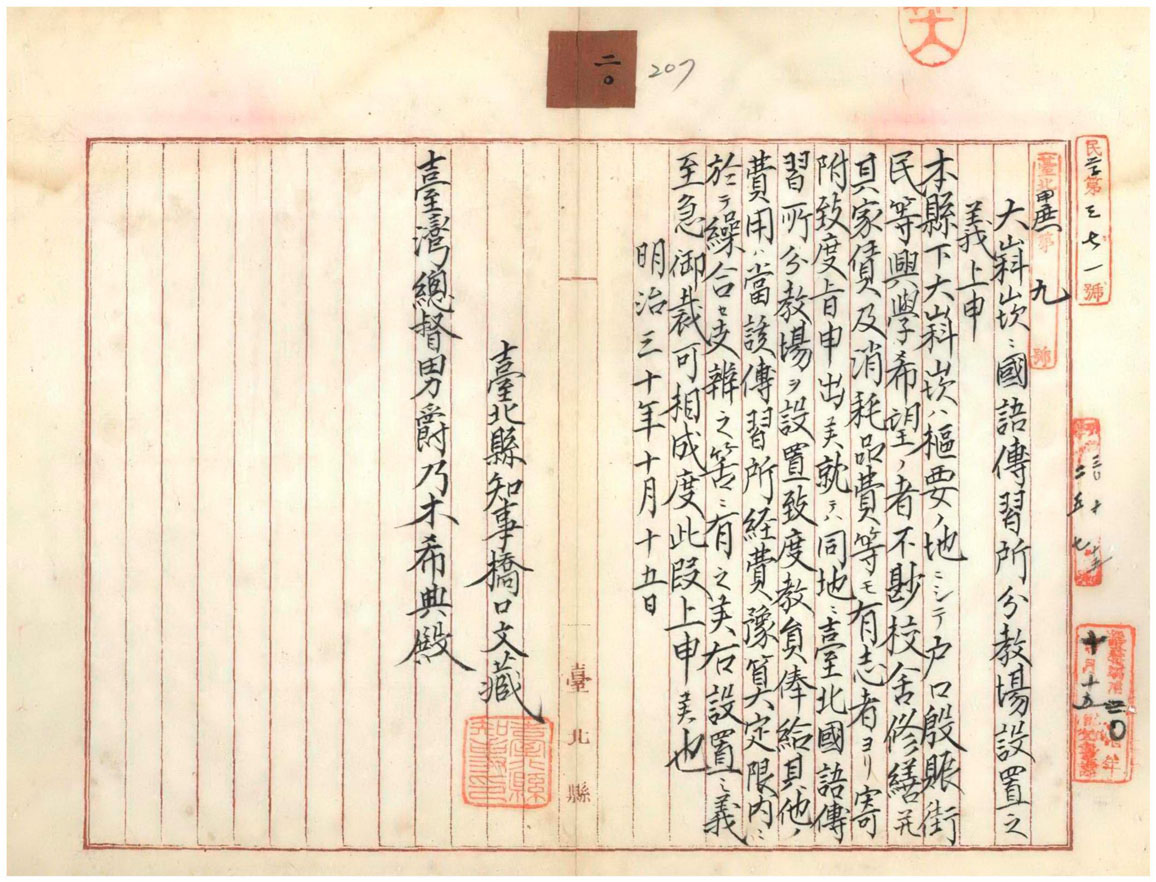 二〇
207
民学第三七一號
臺北縣甲庶第九號
大嵙崁ニ國語傳習所分教場設置之
義上申
本縣下大嵙崁ハ樞要ノ地ニシテ戸口殷賑街
民等興學希望ノ者不尠校舎修繕並
其家賃及消耗品費等モ有志者ヨリ寄
附致度旨申出候就テハ同地ニ臺北國語傳
習所分教場ヲ設置致度教員俸給其他ノ
費用ハ當該傳習所経費豫算定限内ニ
於テ繰合セ支辨之筈ニ有之候右設置之義
至急御裁可相成度此段上申候也
明治三十年十月十五日
臺北縣知事橋口文藏
臺灣總督男爵乃木希典殿
臺北縣